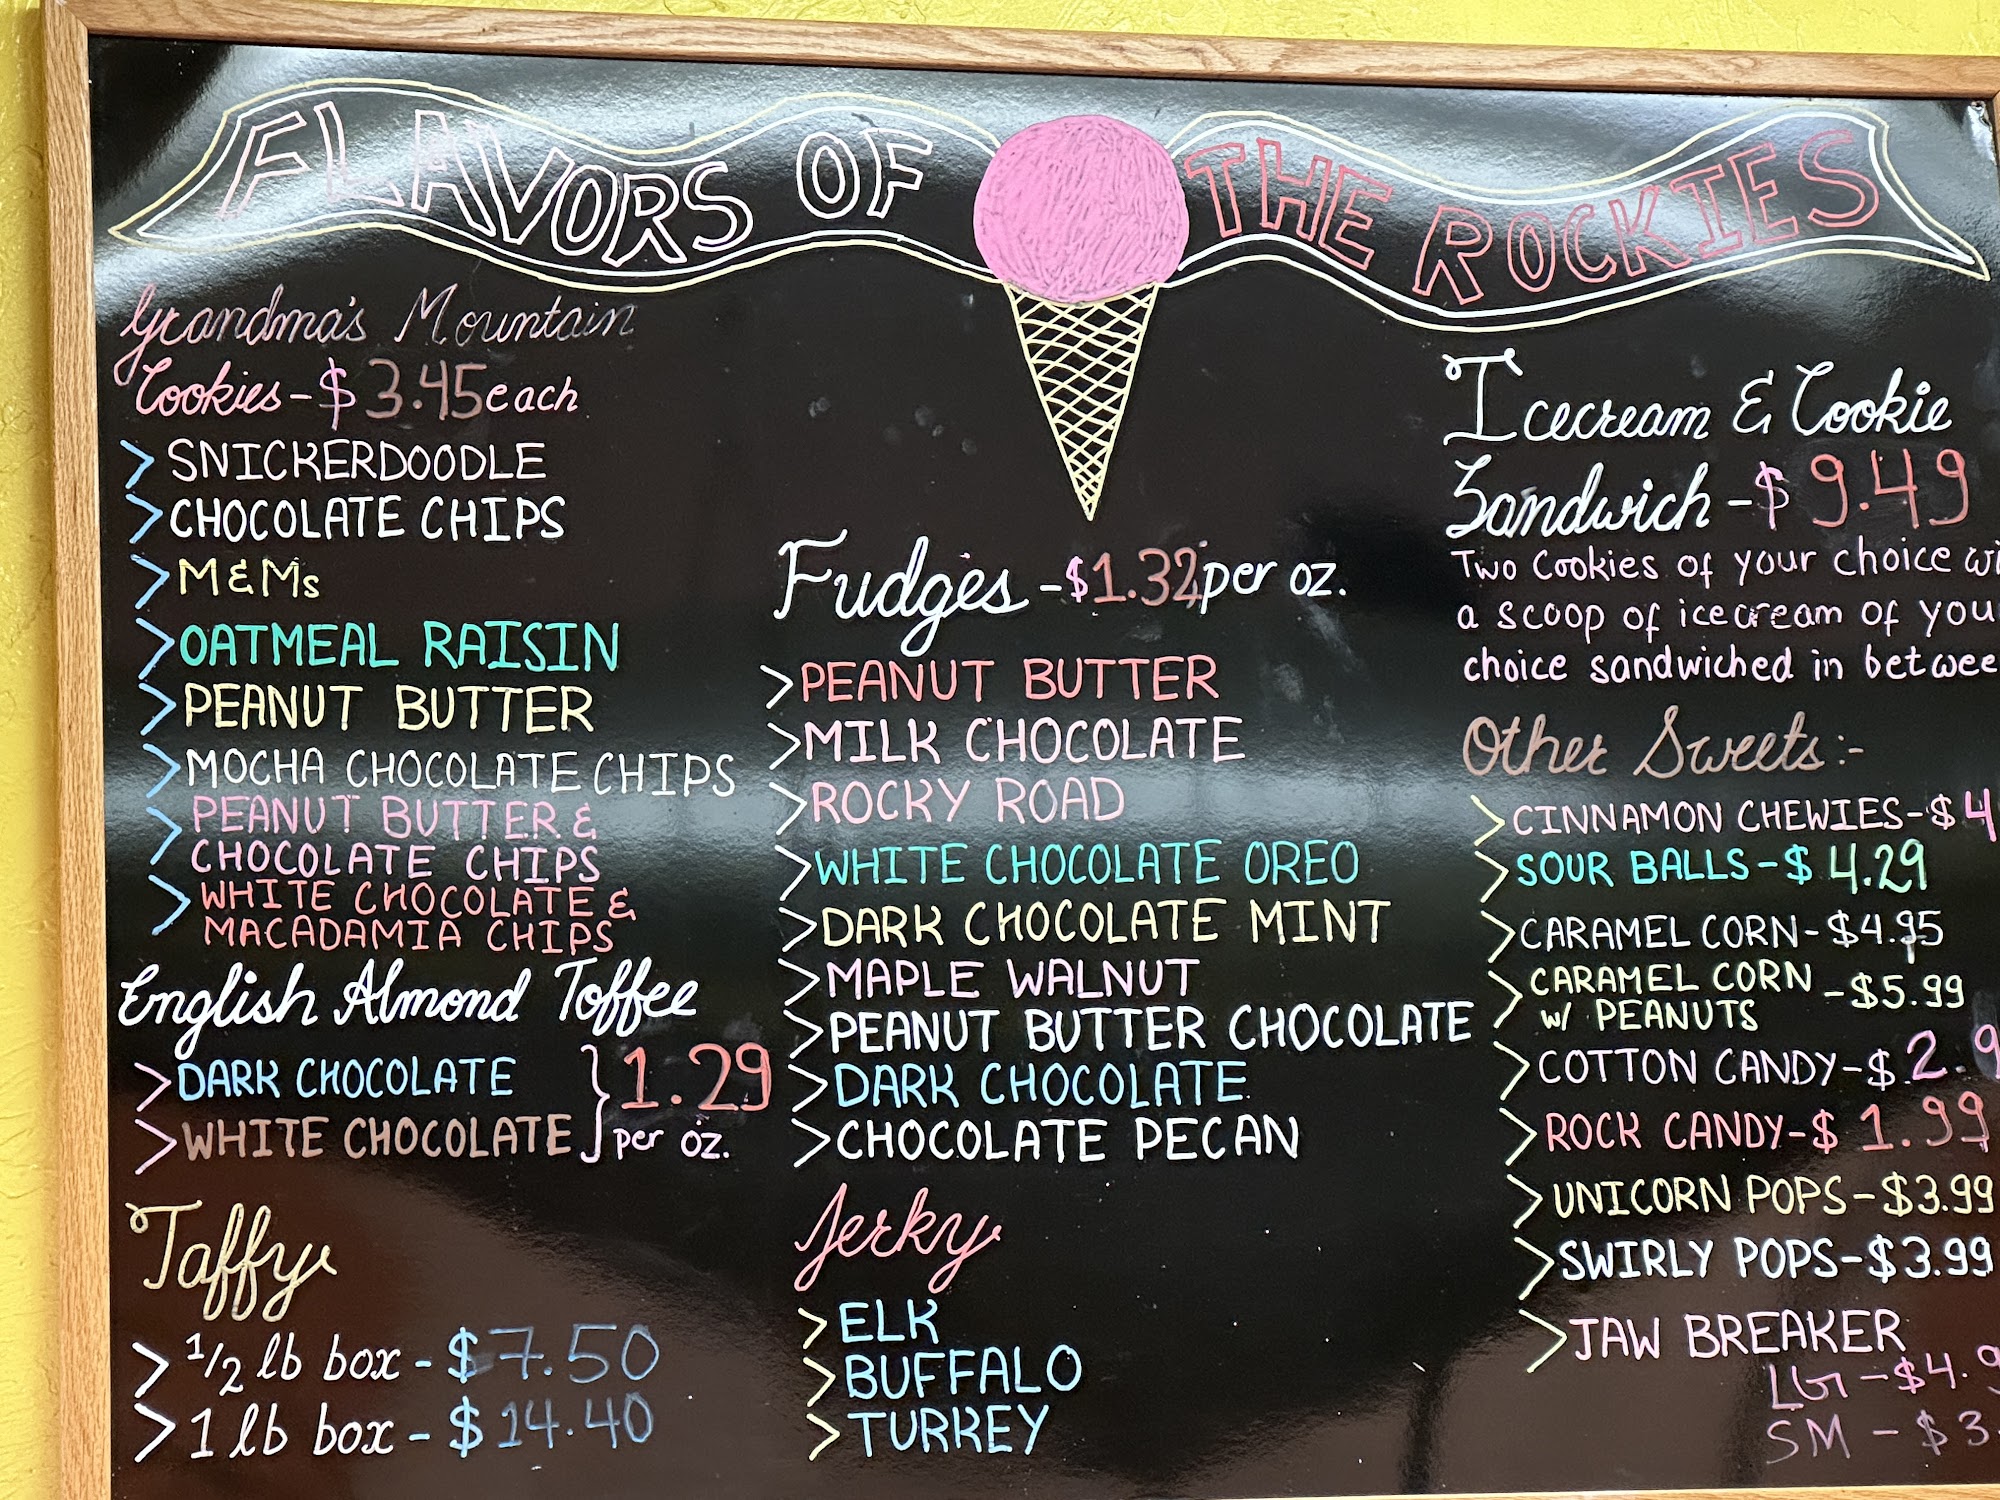 FLAVORS OF THE ROCKIES
Grandma's Mountain
Cookies - $3.45 each
> SNICKERDOODLE
> CHOCOLATE CHIPS
> M&Ms
> OATMEAL RAISIN
> PEANUT BUTTER
> MOCHA CHOCOLATE CHIPS
> PEANUT BUTTER &
CHOCOLATE CHIPS
> WHITE CHOCOLATE &
MACADAMIA CHIPS
English Almond Toffee
> DARK CHOCOLATE
> WHITE CHOCOLATE
} 1.29
per oz.
Taffy
> 1/2 lb box - $7.50
> 1 lb box - $14.40
Fudges - $1.32 per oz.
> PEANUT BUTTER
> MILK CHOCOLATE
> ROCKY ROAD
> WHITE CHOCOLATE OREO
> DARK CHOCOLATE MINT
> MAPLE WALNUT
> PEANUT BUTTER CHOCOLATE
> DARK CHOCOLATE
> CHOCOLATE PECAN
Jerky
> ELK
> BUFFALO
> TURKEY
Icecream & Cookie
Sandwich - $9.49
Two Cookies of your choice
a scoop of icecream of
choice sandwiched in
Other Sweets:-
> CINNAMON CHEWIES - $4
> SOUR BALLS - $4.29
> CARAMEL CORN - $4.95
> CARAMEL CORN
w/ PEANUTS - $5.99
> COTTON CANDY - $2.9
> ROCK CANDY - $1.99
> UNICORN POPS - $3.99
> SWIRLY POPS - $3.99
> JAW BREAKER
LG - $4.9
SM - $3.